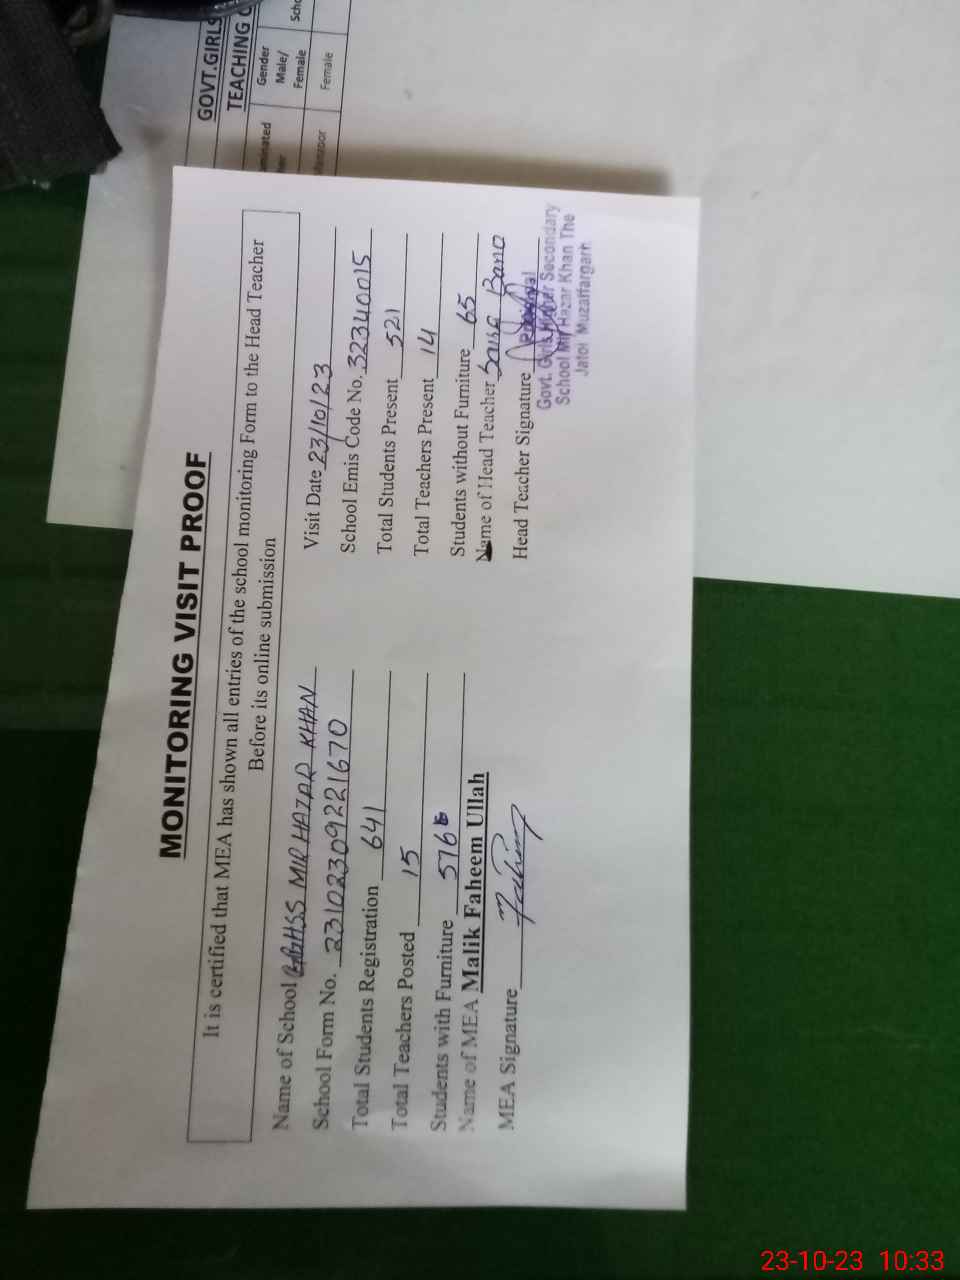 GOVT.GIRLS
TEACHING
Gender
Male/
Female
Female
MONITORING VISIT PROOF
It is certified that MEA has shown all entries of the school monitoring Form to the Head Teacher
Before its online submission
Name of School GGHSS MIR HAZAR KHAN Visit Date 23/10/23
School Form No. 23102309221670 School Emis Code No. 32340015
Total Students Registration 641 Total Students Present 521
Total Teachers Posted 15 Total Teachers Present 14
Students with Furniture 576 Students without Furniture 65
Name of MEA Malik Faheem Ullah Name of Head Teacher Bano
MEA Signature Faheem Head Teacher Signature
Govt. Girls Higher Secondary
School Mir Hazar Khan The
Jatoi Muzaffargarh
23-10-23 10:33